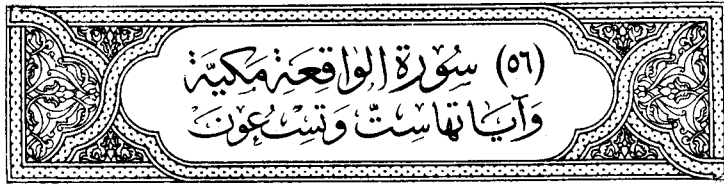 (٥٦) سُورَة الواقعَة مَكيَّة
وَآيَاتها سِتّ وَتسْعُونَ